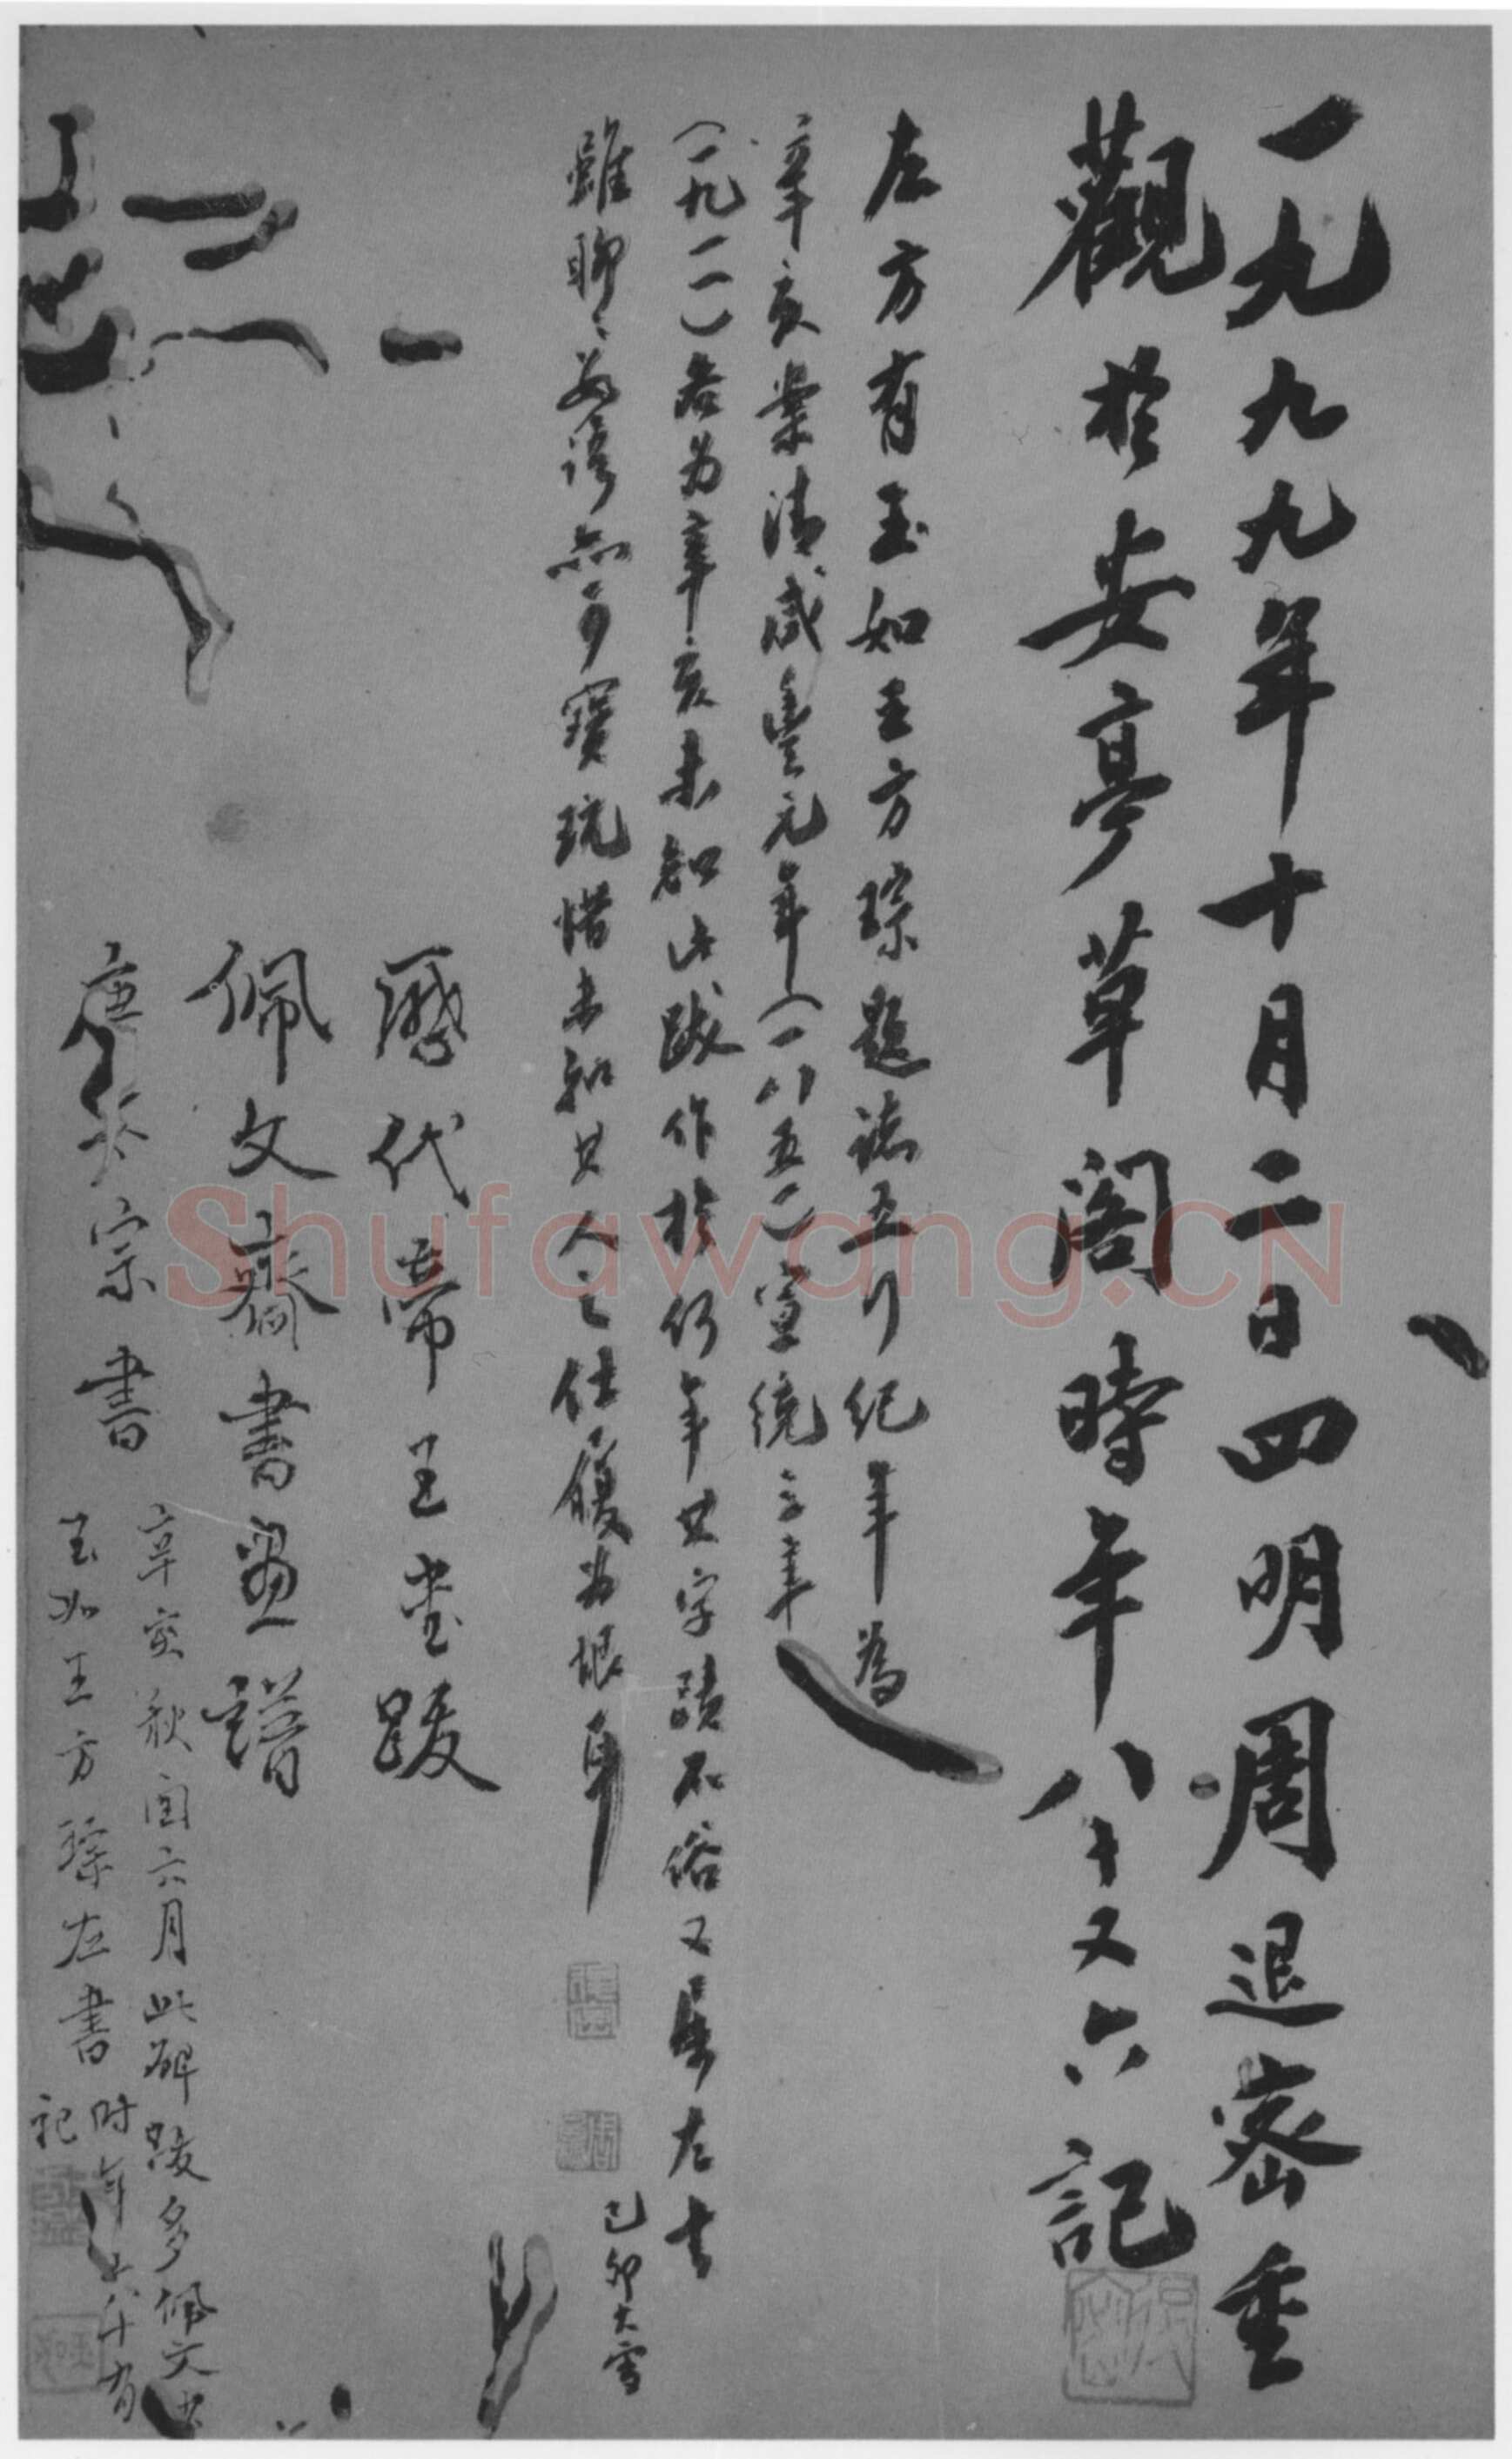 一九九九年十月二日四明周退密重
觀於安亭草閣時年八十又六記
左方有玉如王方琮題誌五行紀年為
辛亥業清咸豐元年(一八五一)宣統三年
(一九一一)各為辛亥未知此跋作於何年其字蹟不俗又屬左書
雖聊聊數語亦可寶玩惜未知其人之仕履為恨耳
己卯大雪
歷代帝王書跋
佩文齋書畫譜
唐太宗書
辛亥秋閏六月此碑跋多佩文
玉如王方琮左書時年
記
Shufawang.CN